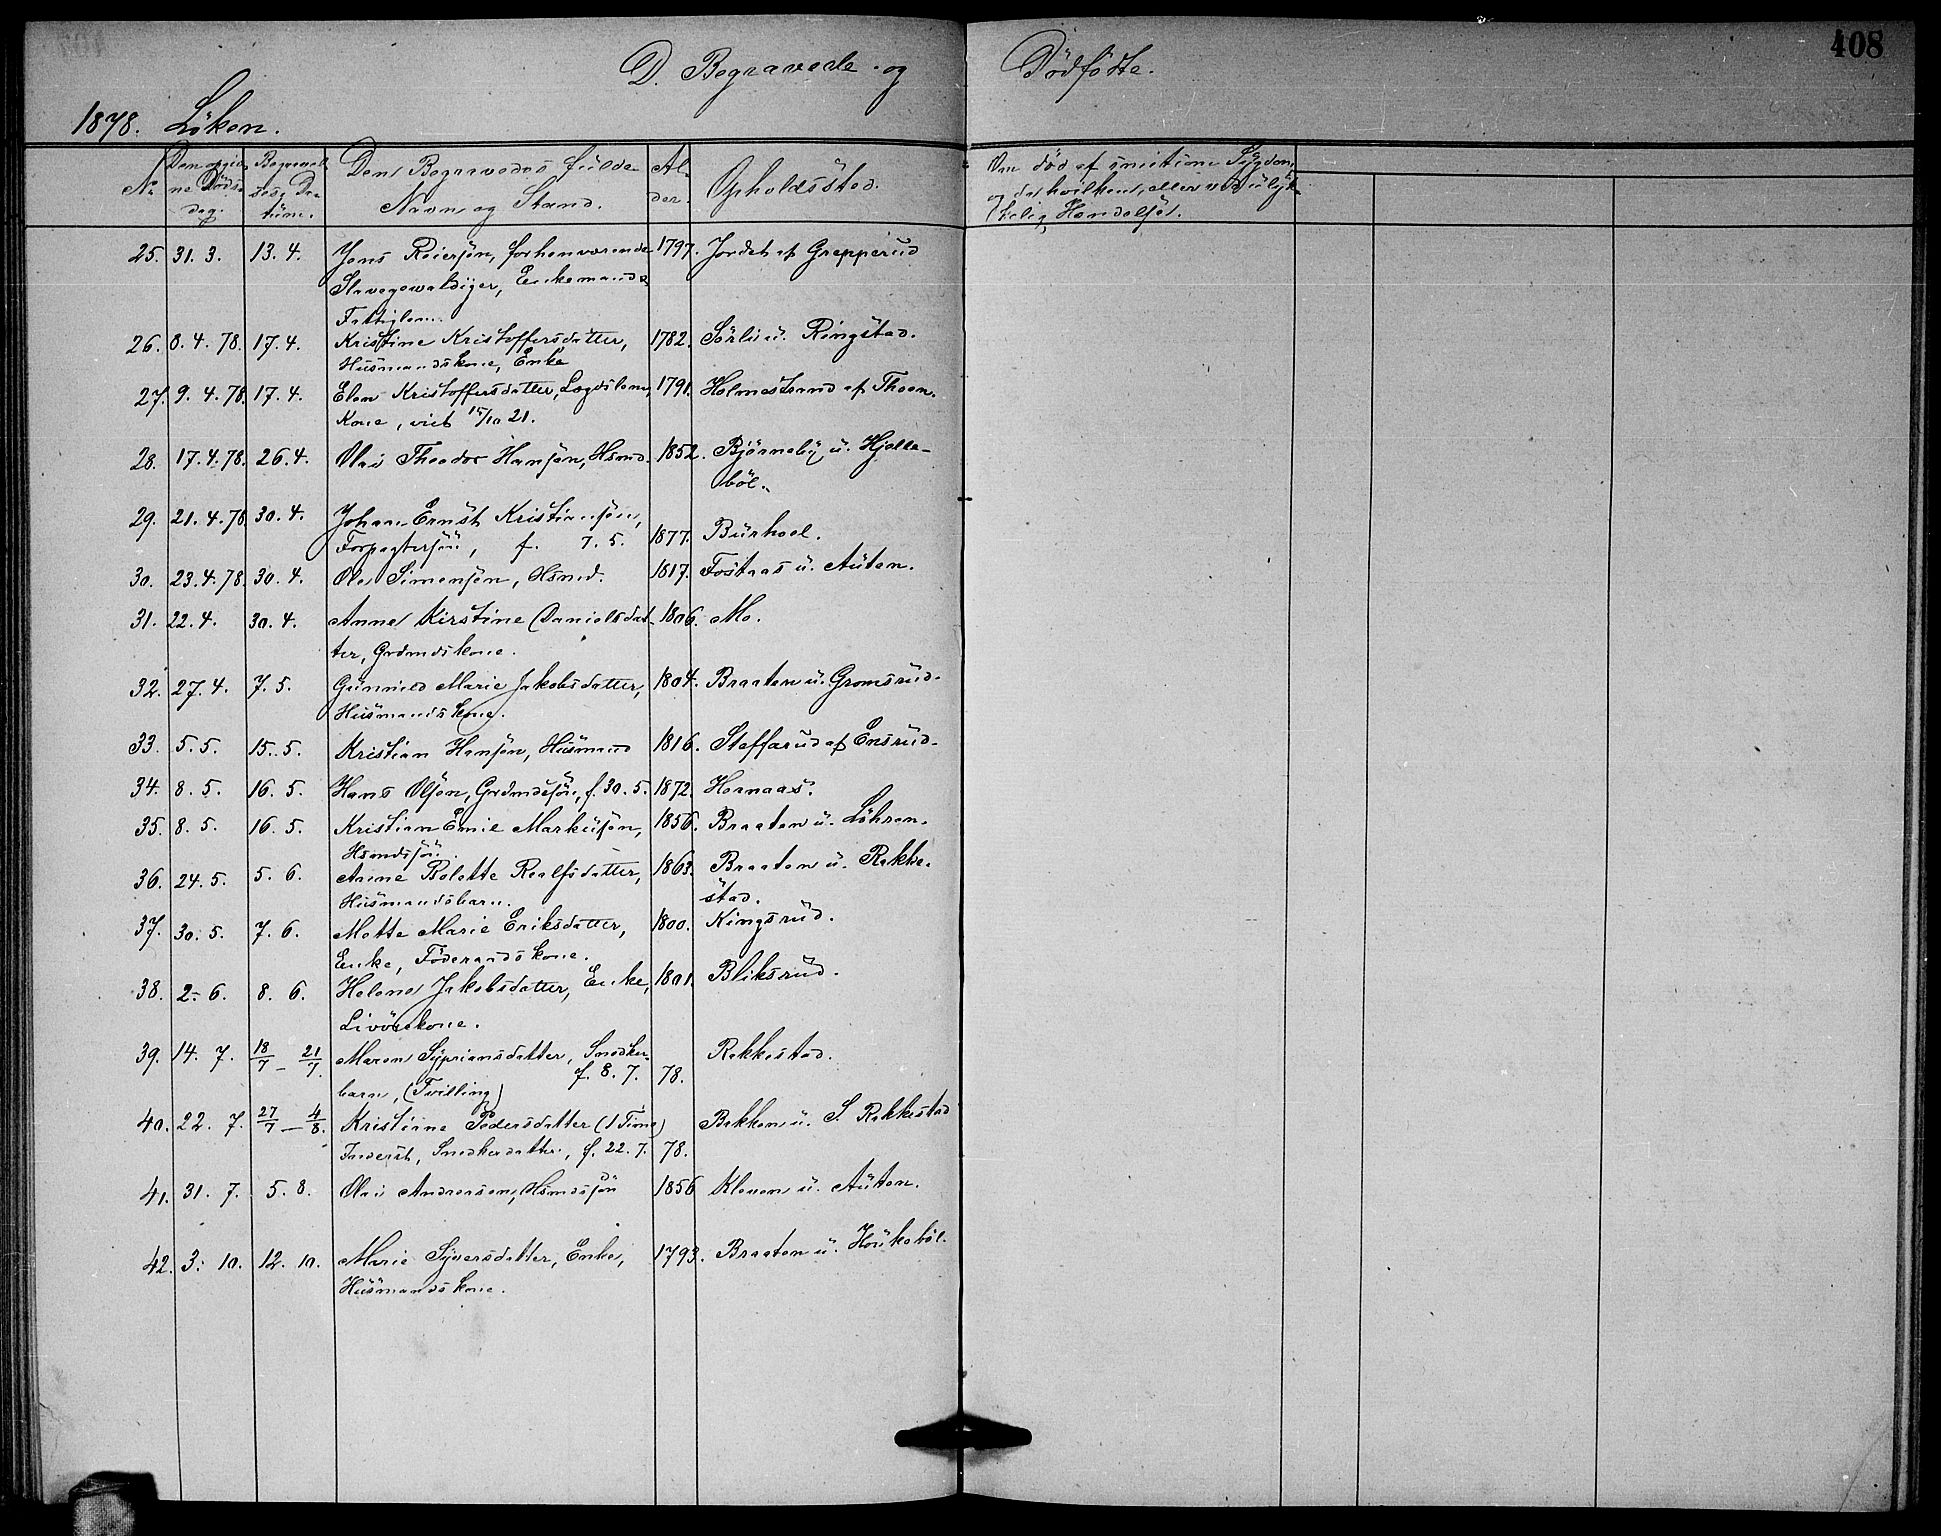 408
D. Begravede og Dödfödte.
1878. Löken.
No. Den opgivne Dödsdag. Begravelses Datum. Den Begravedes fulde Navn og Stand. Alder. Opholdssted. Om död af smitsom Sygdom, og da hvilken, eller ved ulykkelig Hendelse.
25. 31. 3. 13. 4. Jens Reiersjön, forhenværende 1797. Jordet af Grepperud
Enkemand
Fattiglem.
26. 8. 4. 78. 17. 4. Kristine Kristoffersdatter, 1782. Sörli u. Ringstad.
Husmandskone, Enke
27. 9. 4. 78. 17. 4. Elen Kristoffersdatter, Lægdslem, 1791. Holmestrand af Thoen.
Kone, viet 15/10 21.
28. 17. 4. 78. 26. 4. Olai Theodor Hansen, Hsmd. 1852. Björneby u. Hjelle-
böl.
29. 21. 4. 78. 30. 4. Johan Ernst Kristiansen,
Forpagtersön, f. 7. 5. 1877. Burhoel.
30. 23. 4. 78. 30. 4. Ole Simensen, Hsmd. 1817. Fostaas u. Auten.
31. 22. 4. 30. 4. Anne Kirstine Danielsdat- 1806. Mo.
ter, Grdmdskone.
32. 27. 4. 7. 5. Gunnild Marie Jakobsdatter, 1804. Braaten u. Gromsrud.
Husmandskone.
33. 5. 5. 15. 5. Kristian Hansen, Husmand 1816. Steffarud af Ensrud.
34. 8. 5. 16. 5. Hans Olsen, Grdmdssön, f. 30. 5. 1872. Hornaas.
35. 8. 5. 16. 5. Kristian Emil Markusen, 1856. Braaten u. Löhren.
Hsmdssön.
36. 24. 5. 5. 6. Anne Bolette Roalfsdatter, 1863. Braaten u. Rakke-
Husmandsbarn. stad.
37. 30. 5. 7. 6. Mette Marie Eriksdatter, 1800. Kingsrud.
Enke, Föderaadskone.
38. 2. 6. 8. 6. Helene Jakobsdatter, Enke, 1801. Bliksrud.
Livöreskone.
39. 14. 7. 18/7 – 21/7. Maren Sypriansdatter, Snedker- Rakkestad.
barn, (Tvilling) f. 8. 7. 78.
40. 22. 7. 27/7 – 4/8. Kristiane Pedersdatter (1 Time) Bakken u. S. Rakkestad
Inderst, Snedkerdatter, f. 22. 7. 78.
41. 31. 7. 5. 8. Olai Andreasen, Hsmdssön 1856 Kleven u. Auten.
42. 3. 10. 12. 10. Marie Syversdatter, Enke, 1793. Braaten u. Houkeböl.
Husmandskone.